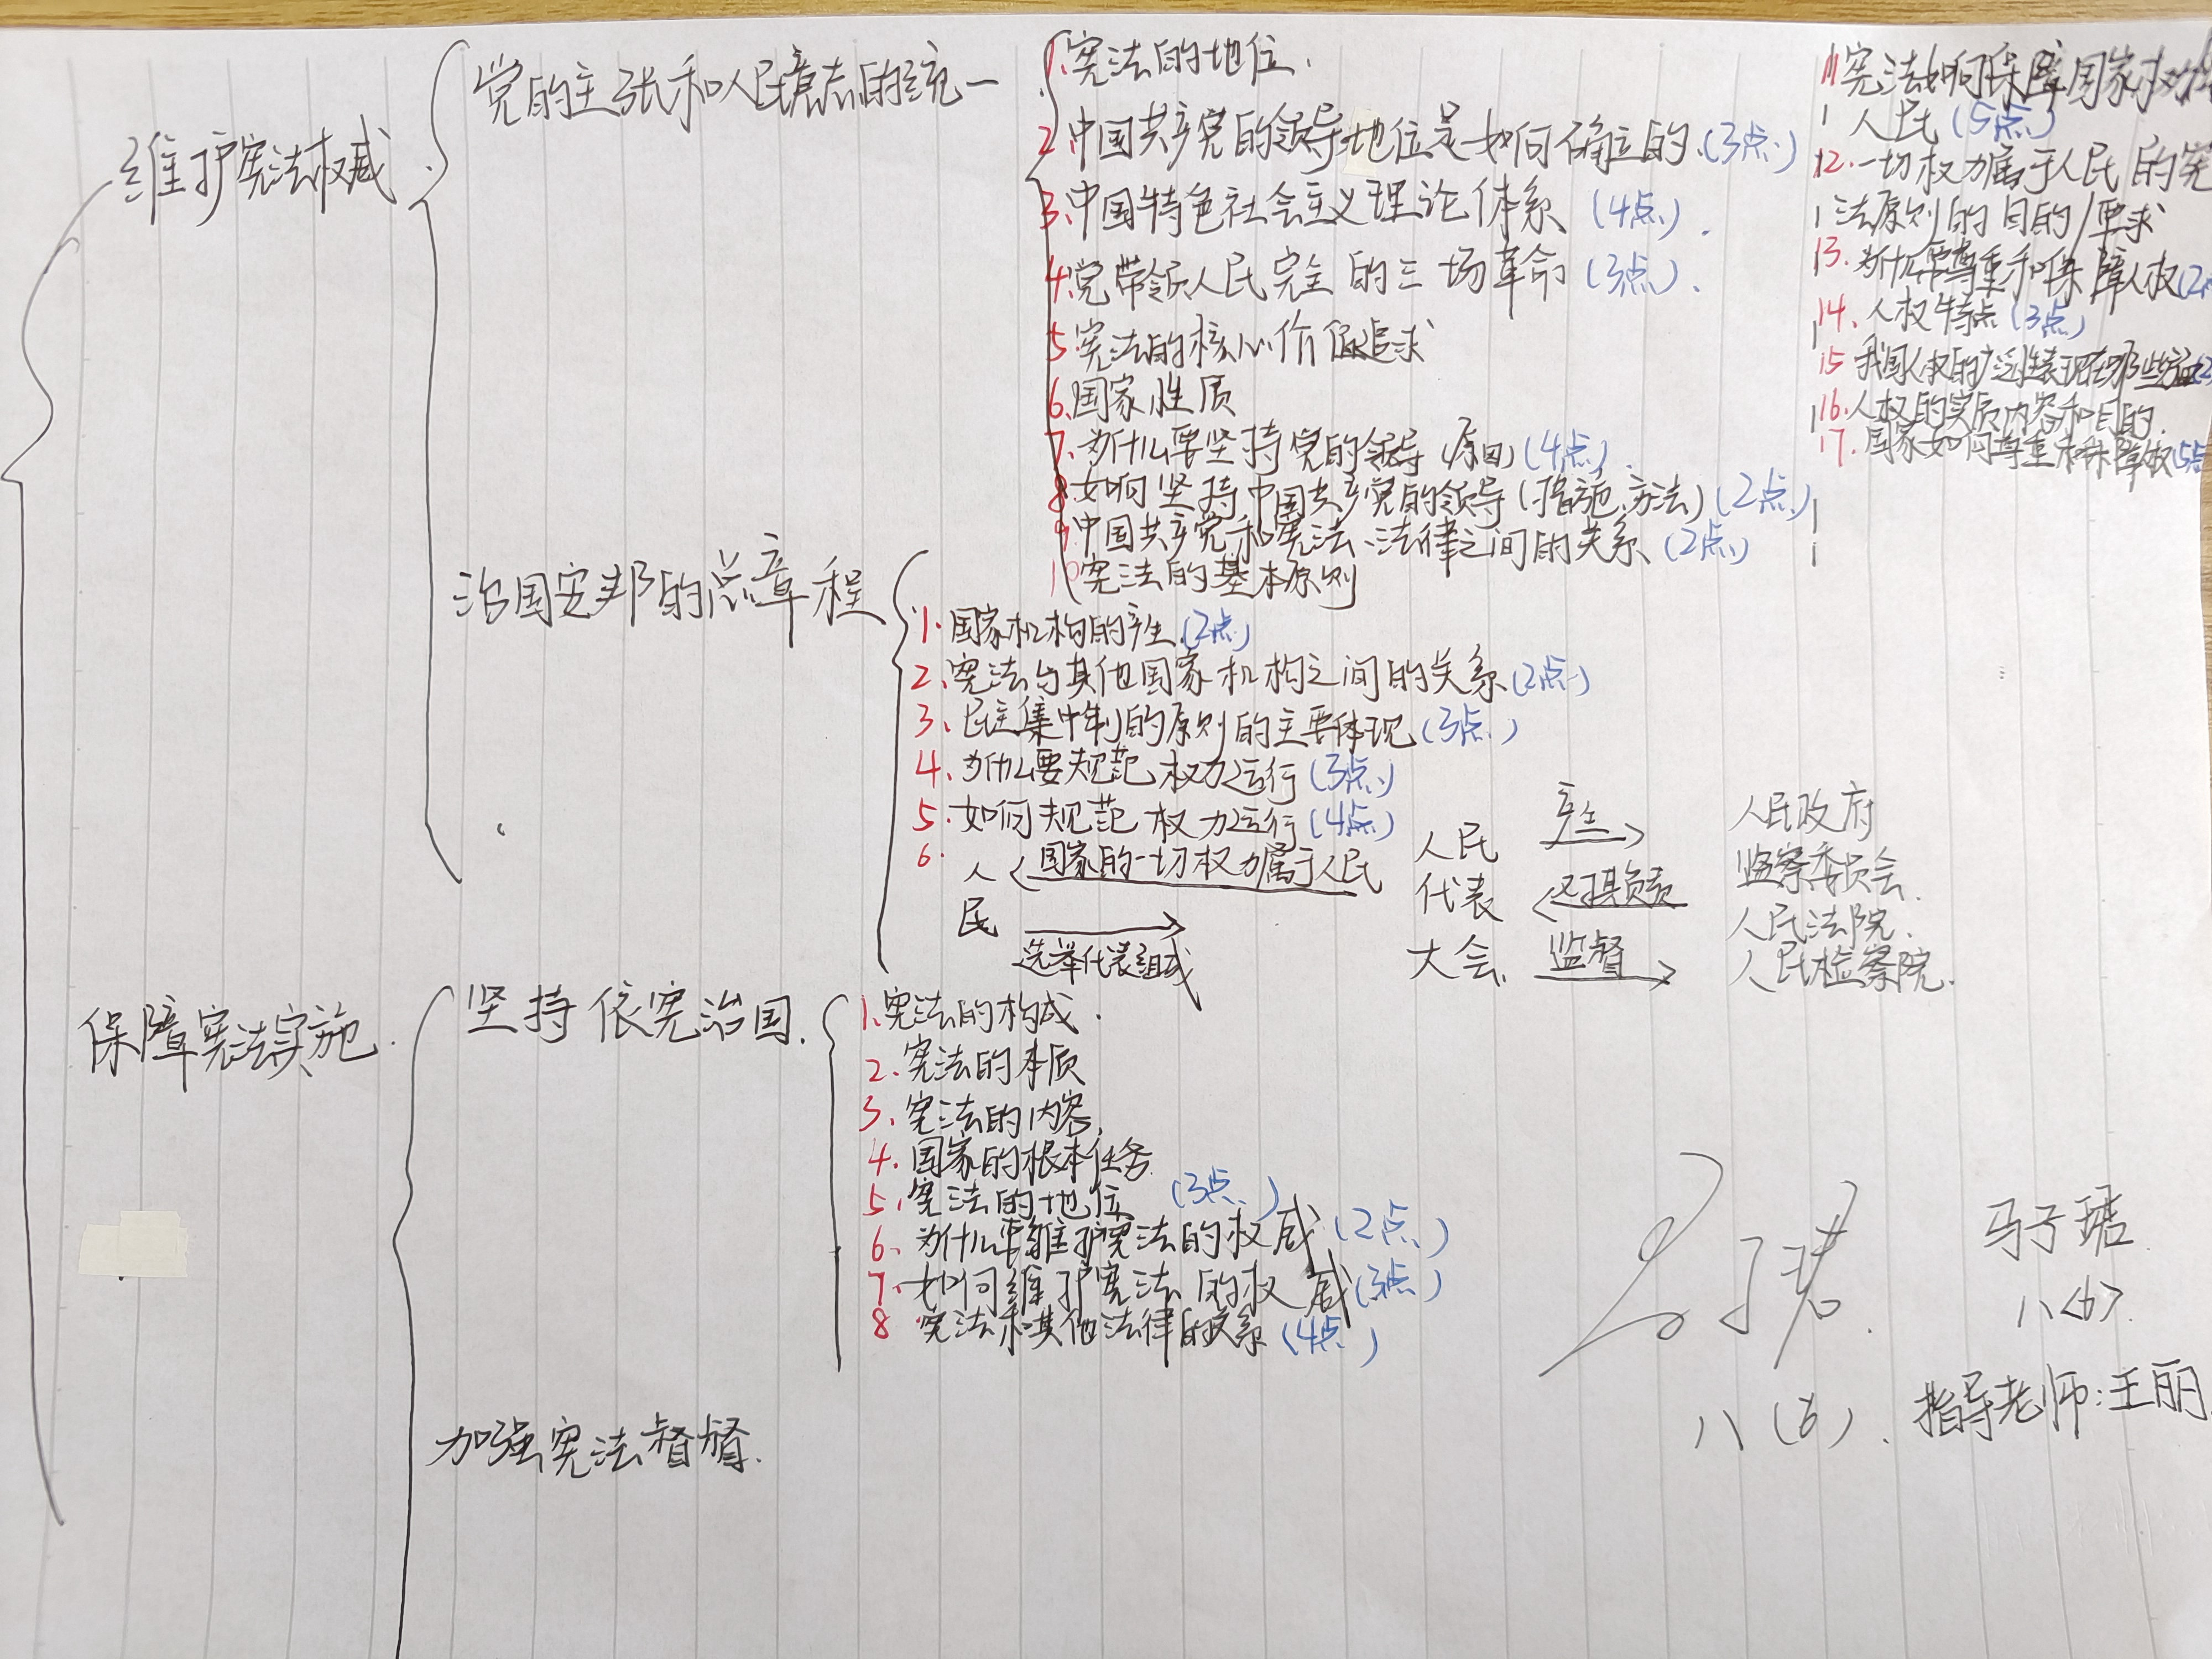 维护宪法权威
党的主张和人民意志的统一
1.宪法的地位.
2.中国共产党的领导地位是如何确立的.(3点)
3.中国特色社会主义理论体系(4点).
4.党带领人民完全的三场革命(3点).
5.宪法的核心价值追求
6.国家性质
7.为什么要坚持党的领导(原因)(4点).
8.如何坚持中国共产党的领导(措施、方法)(2点)
9.中国共产党和宪法、法律之间的关系(2点)
10宪法的基本原则
11宪法如何保障国家权力
人民(5点)
12.一切权力属于人民的宪
法原则的目的/要求
13.为什么要尊重和保障人权(2
14.人权特点(3点)
15我国人权的广泛性表现在哪些方面(2
16.人权的实质内容和目的.
17.国家如何尊重和保障人权(5点
治国安邦的总章程
1.国家机构的产生(2点)
2.宪法与其他国家机构之间的关系(2点)
3.民主集中制的原则的主要体现(3点)
4.为什么要规范权力运行(3点)
5.如何规范权力运行(4点)
6.
人民
国家的一切权力属于人民
选举代表组成
人民代表大会
产生
对其负责
监督
人民政府
监察委员会
人民法院.
人民检察院.
保障宪法实施.
坚持依宪治国.
1.宪法的构成.
2.宪法的本质
3.宪法的内容.
4.国家的根本任务.
5.宪法的地位(3点)
6.为什么要维护宪法的权威(2点)
7.如何维护宪法的权威(3点)
8宪法和其他法律的关系(4点)
加强宪法督.
马子
八(6).
八(6).
指导老师:王丽